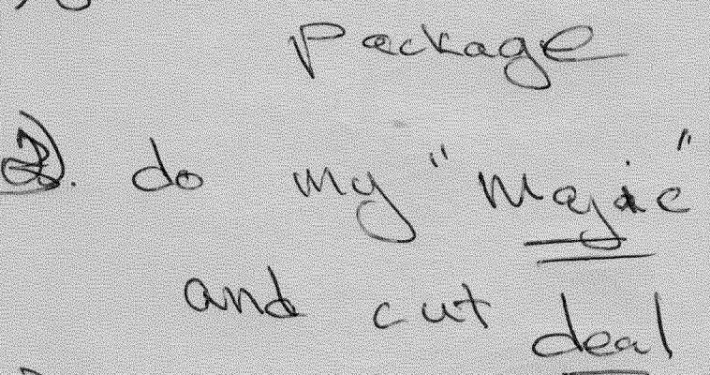 Package
2). do my "Majic"
and cut deal